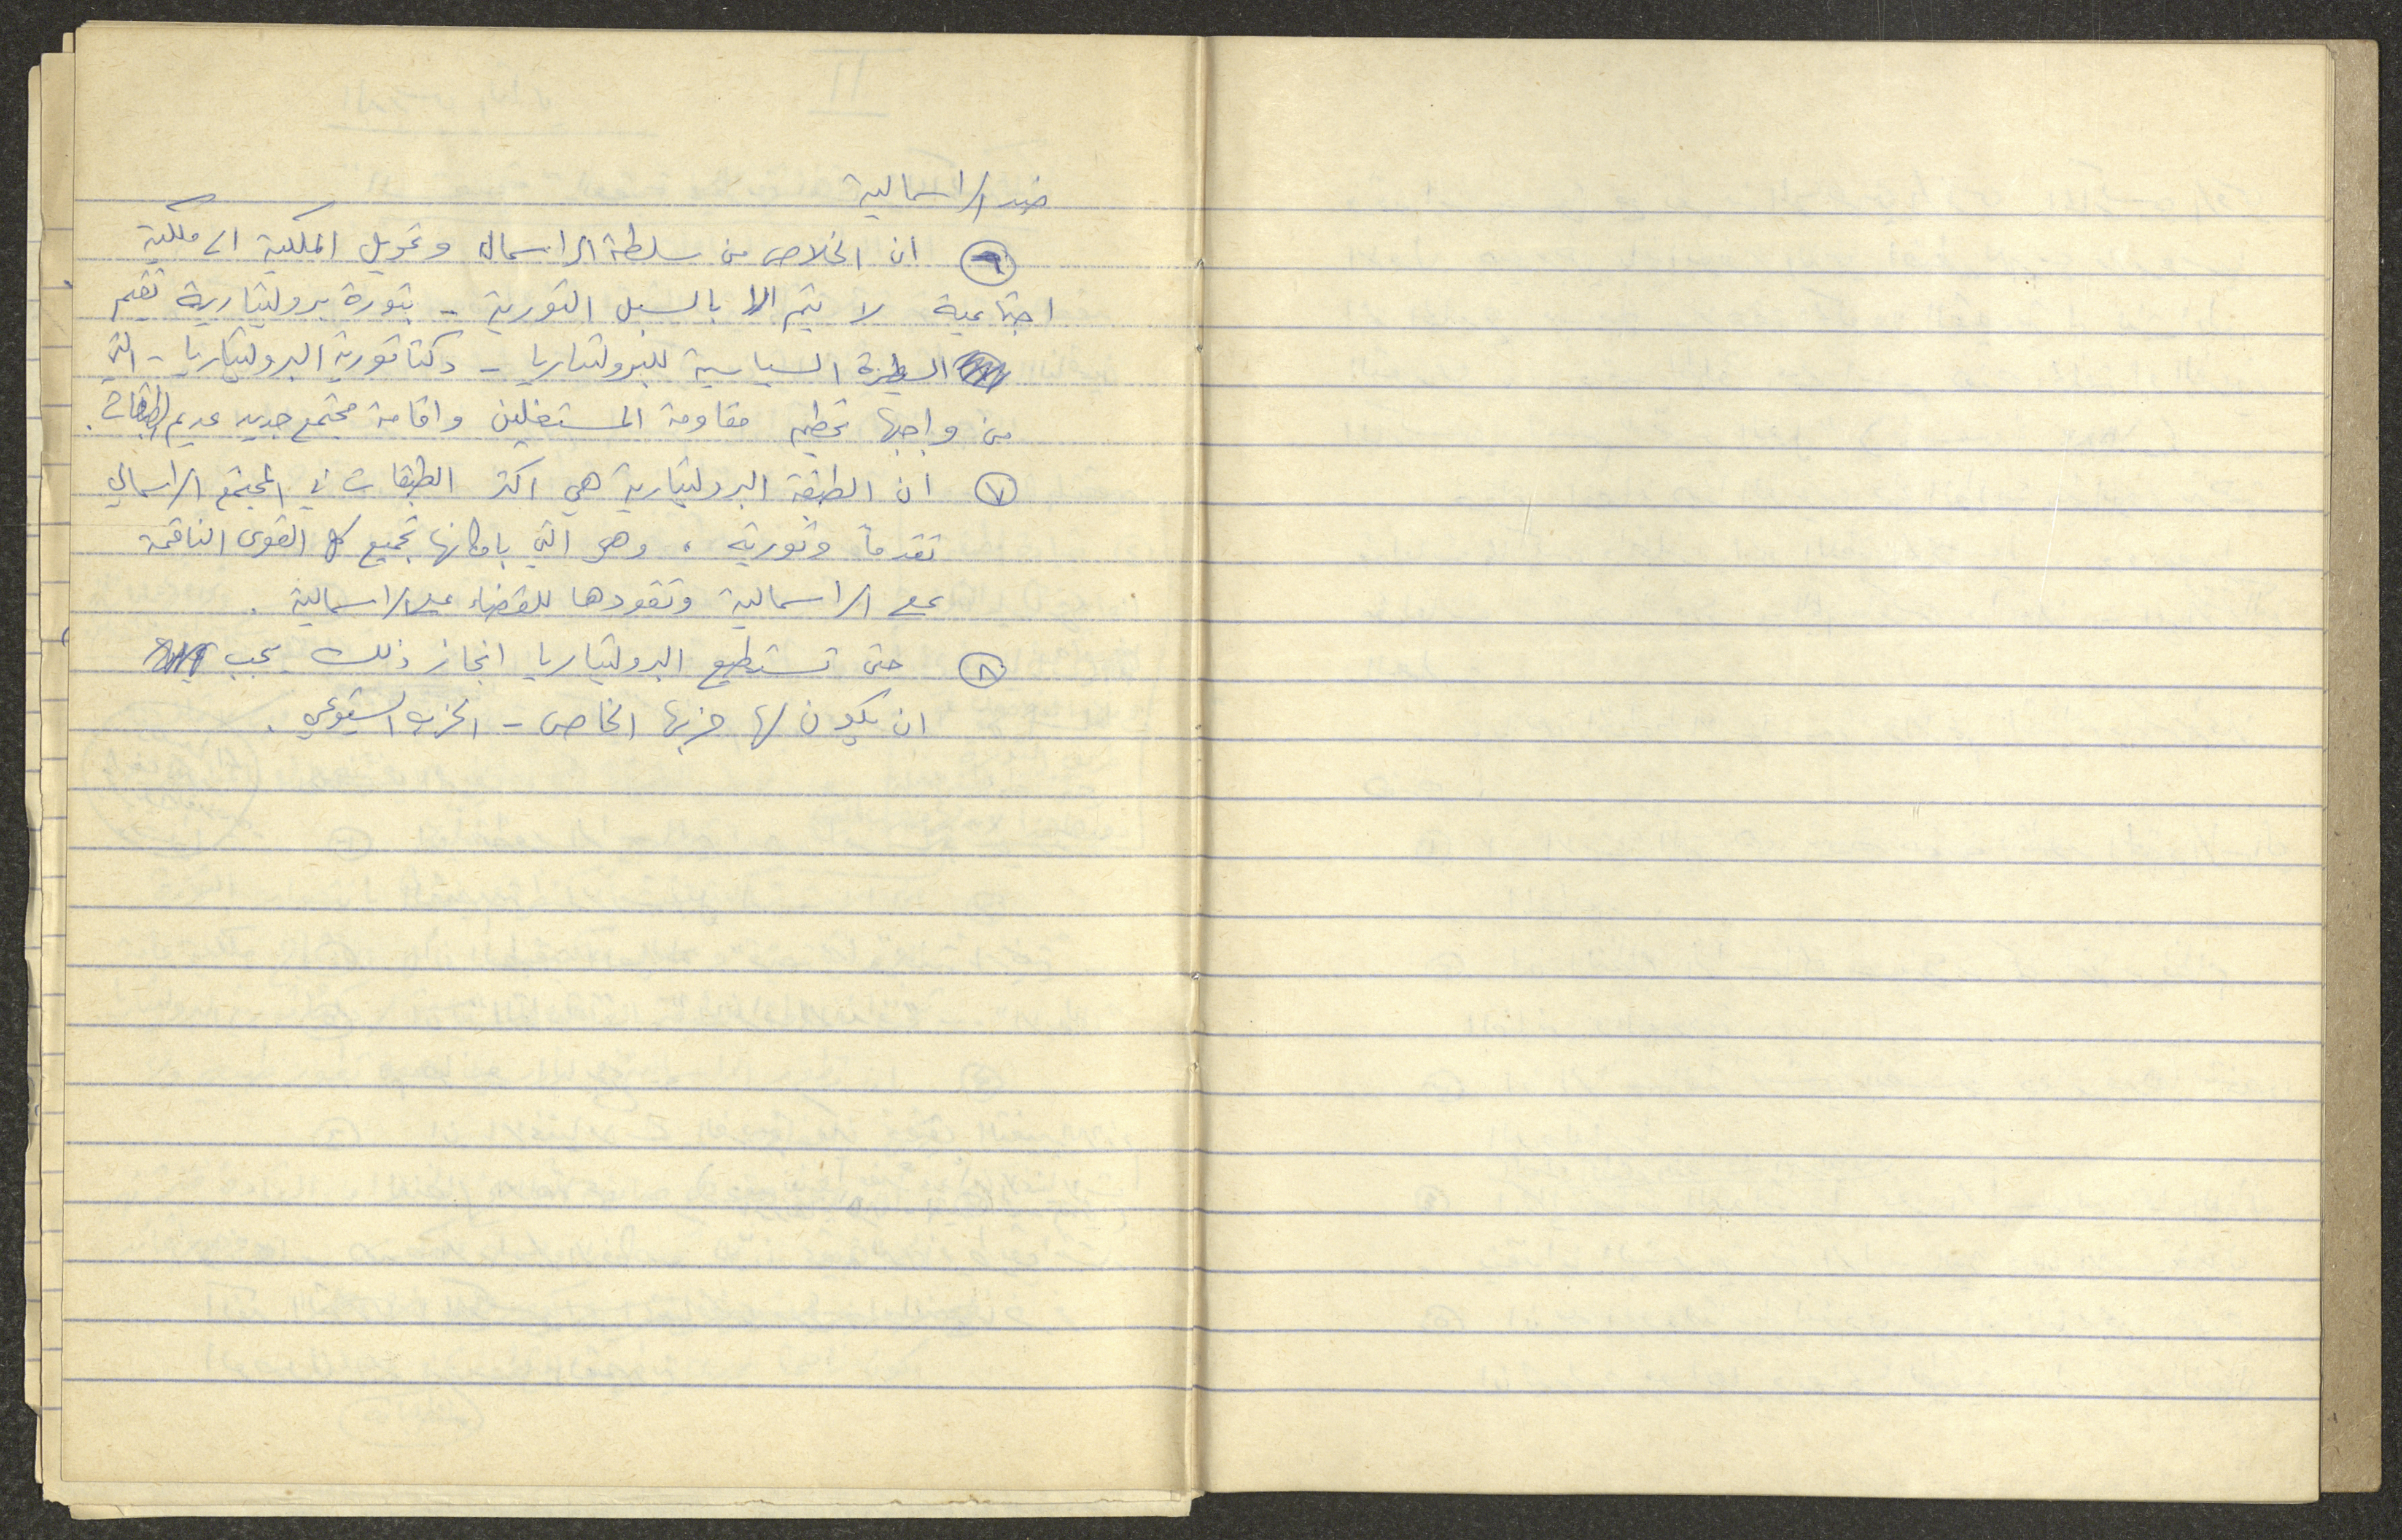 ضد الراسمالية
٦ ان الخلاص من سلطة الراسمال وتحويل الملكية الى ملكية
اجتماعية لا يتم الا بالسبل الثورية - بثورة بروليتارية تقيم
السيطرة السياسية للبروليتاريا - دكتاتورية البروليتاريا - التي
من واجبها تحطيم مقاومة المستغلين واقامة مجتمع جديد عديم الطبقات.
٧ ان الطبقة البروليتارية هي اكثر الطبقات في المجتمع الراسمالي
تقدماً وثورية ، وهي التي بامكانها تجميع كل القوى الناقمة
على الراسمالية وتقودها للقضاء على الراسمالية .
٨ حتى تستطيع البروليتاريا انجاز ذلك يجب
ان يكون لها حزبها الخاص - الحزب الشيوعي .